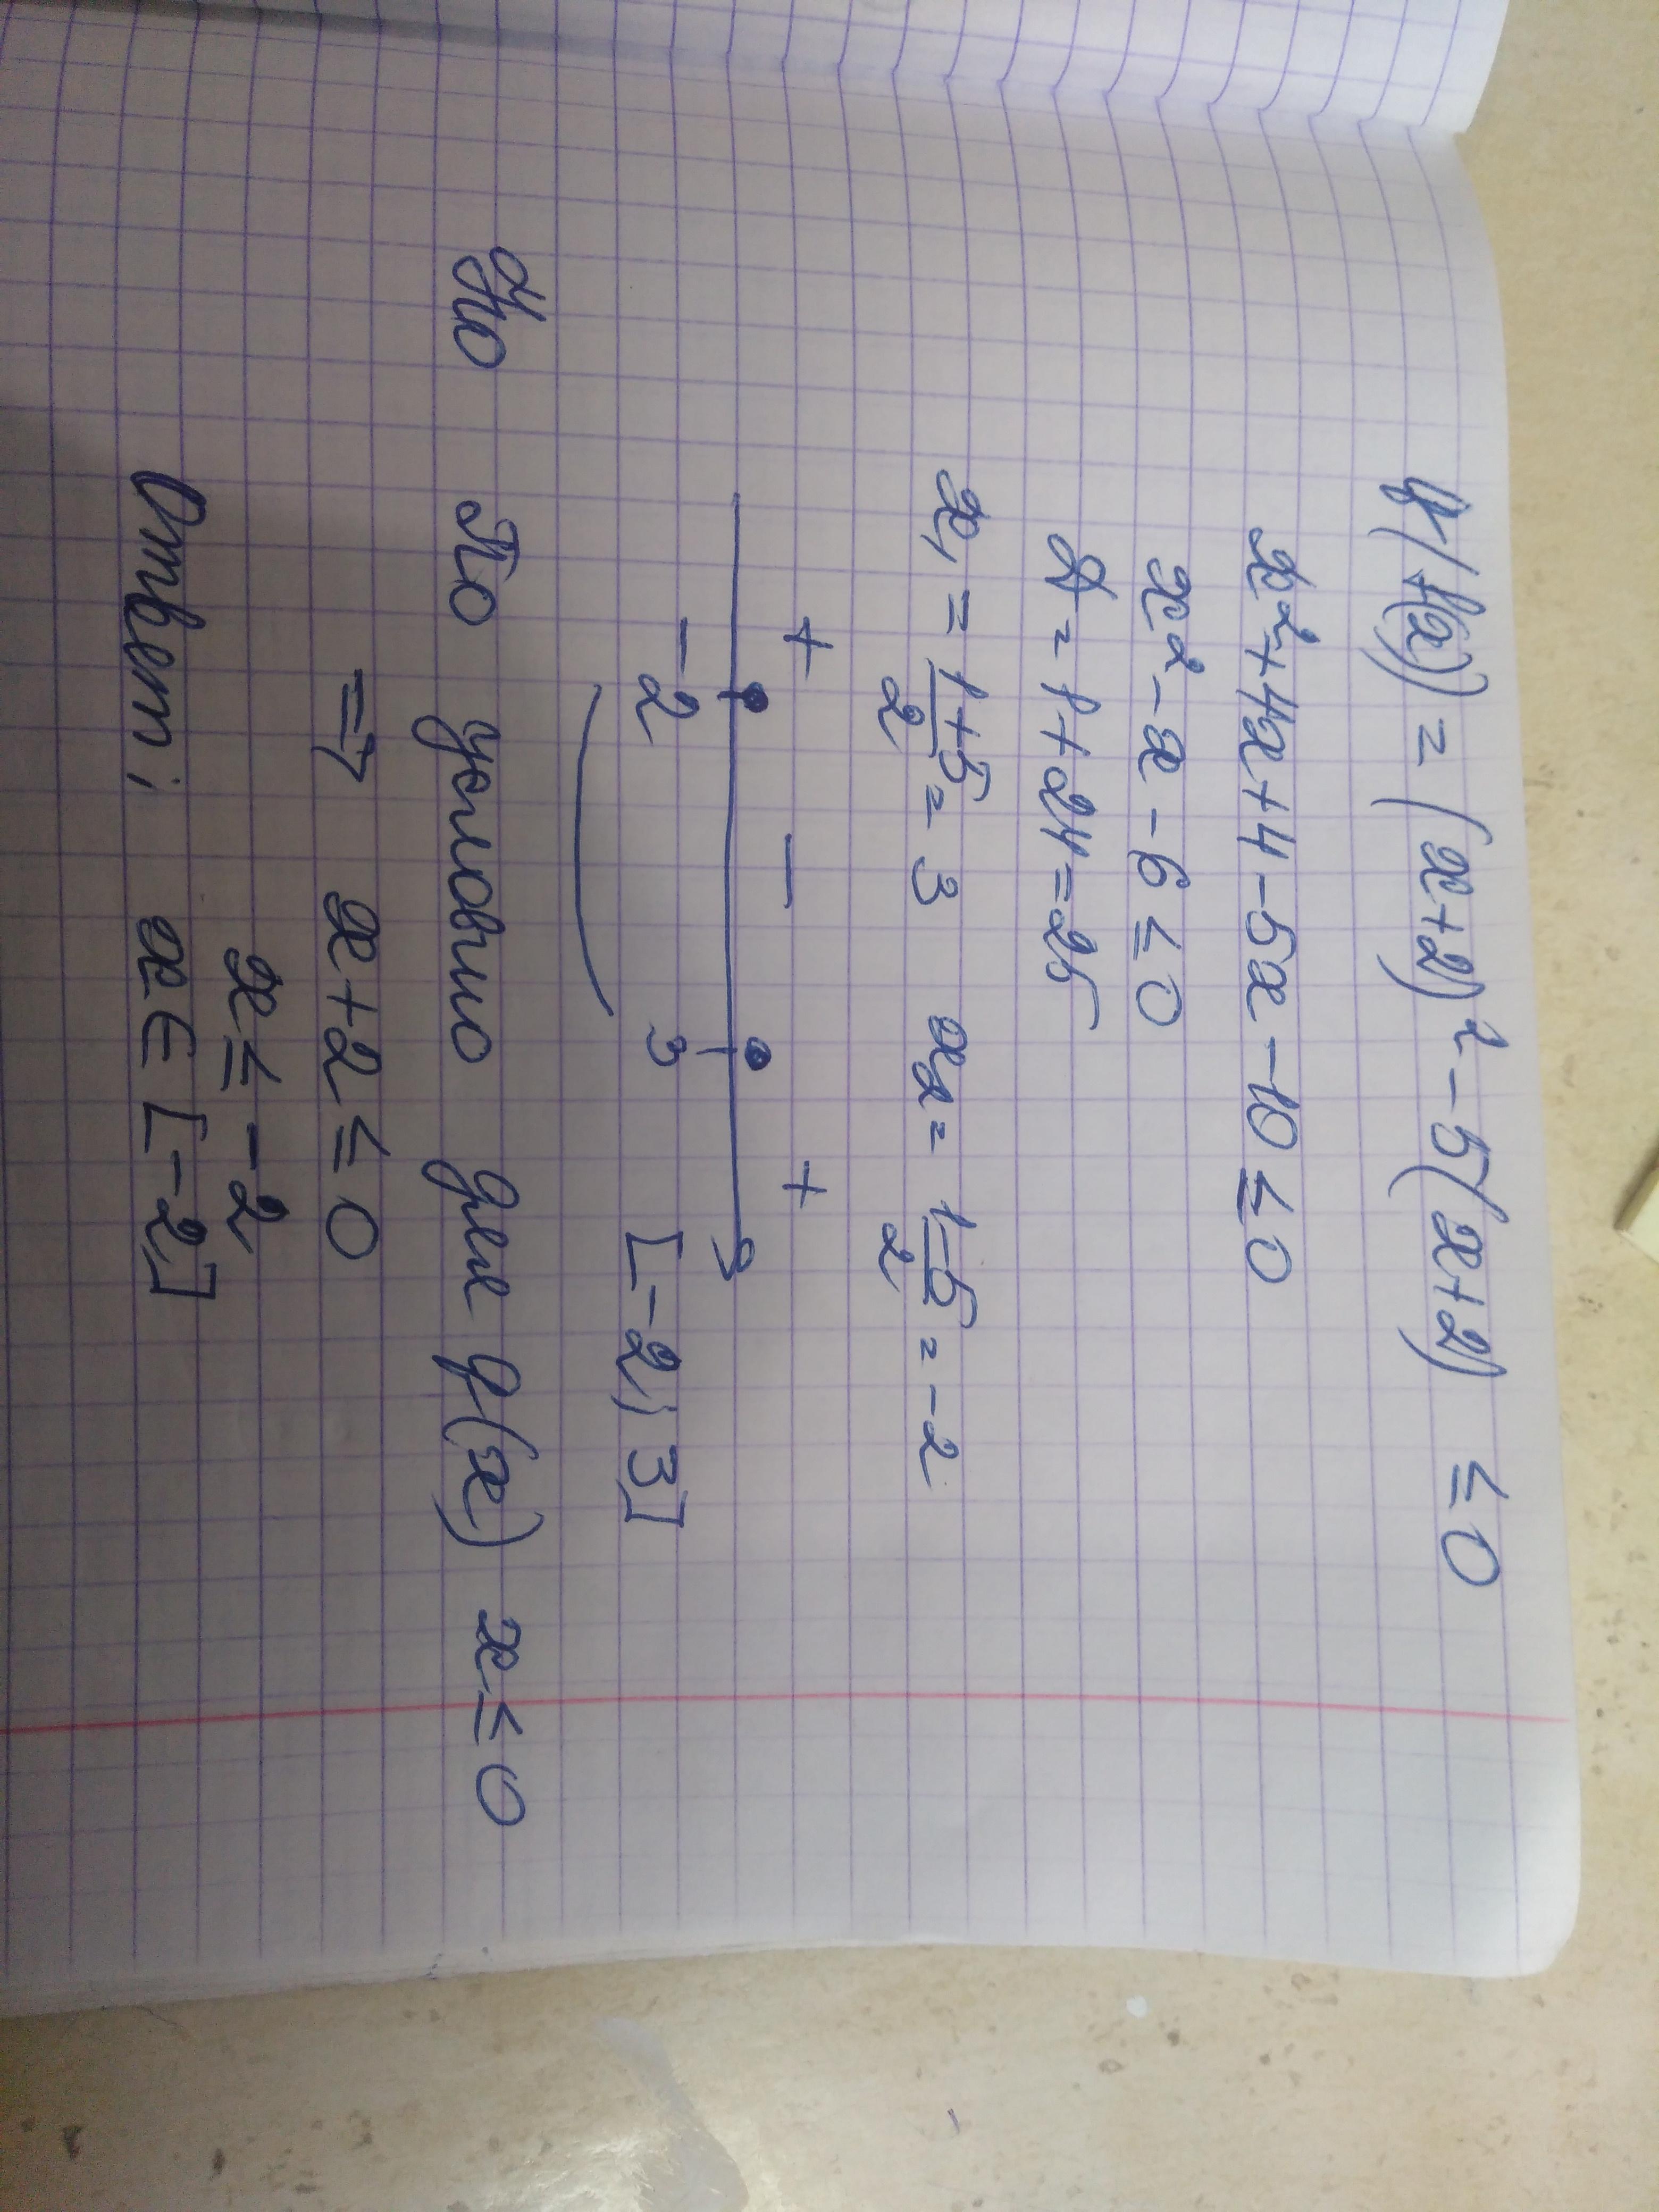 g(f(x)) = (x+2)² - 5(x+2) ≤ 0
x² + 4x + 4 - 5x - 10 ≤ 0
x² - x - 6 ≤ 0
D = 1 + 24 = 25
x₁ = (1+5)/2 = 3 x₂ = (1-5)/2 = -2
+ - +
-2 3 [-2; 3]
Но По условию для g(x) x ≤ 0
=> x + 2 ≤ 0
x ≤ -2
Ответ: x ∈ [-2]